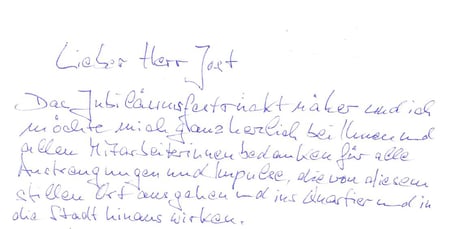 Lieber Herr Jost
Das Jubiläumsfest rückt näher und ich
möchte mich ganz herzlich bei Ihnen und
allen Mitarbeiterinnen bedanken für alle
Anstrengungen und Impulse, die von diesem
stillen Ort ausgehen und ins Quartier und in
die Stadt hinaus wirken.